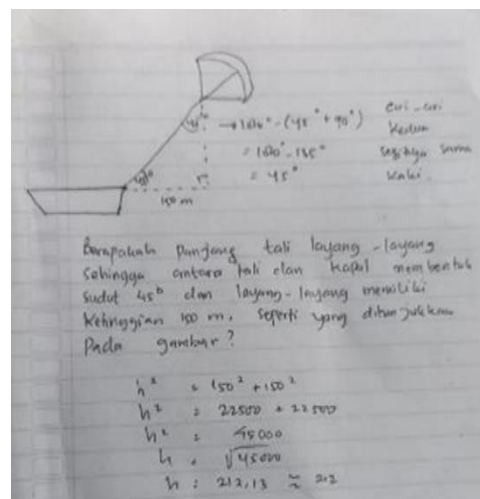 45°
→ 180° - (45° + 90°)
= 180° - 135°
= 45°
ciri-ciri
Kedua
segitiga sama
kaki.
45°
150 m
Berapakah panjang tali layang-layang
sehingga antara tali dan kapal membentuk
sudut 45° dan layang-layang memiliki
Ketinggian 150 m, seperti yang ditunjukkan
Pada gambar?
h² = 150² + 150²
h² = 22500 + 22500
h² = 45000
h = √45000
h = 212,13 ≈ 212